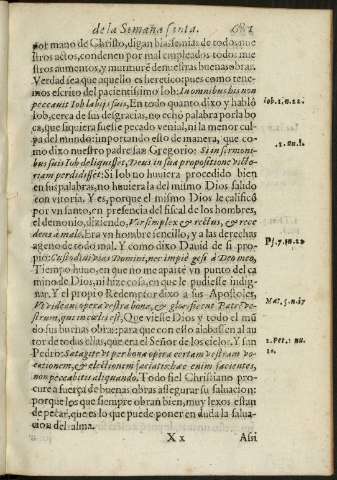 de la Semaña sinta. 681
por mano de Christo, digan blasfemias de todos nue
stros actos, condenen por mal empleados todos nue
stros aumentos, y murmurē de nuestras buenas obras.
Verdad sea que aquello es heretico: pues como tene-
mos escrito del pacientissimo Iob: In omnibus his non
peccauit Iob labijs suis, En todo quanto dixo y habló
Iob, cerca de sus desgracias, no echó palabra por la bo
ca, que siquiera fuesse pecado venial, ni la menor cul
pa del mundo: importando esto de manera, que co-
mo dixo nuestro padre san Gregorio: Si in sermoni-
bus suis Iob deliquisset, Deus in sua propositione victo-
riam perdidisset: Si Iob no huuiera procedido bien
en sus palabras, no huuiera la del mismo Dios salido
con vitoria. Y es, porque el mismo Dios le calificó
por vn santo, en presencia del fiscal de los hombres,
el demonio, diziendo, Vir simplex & rectus, & rece-
dens à malo, Era vn hombre senzillo, y a las derechas
ageno de todo mal. Y como dixo Dauid de si pro-
pio: Custodiui vias Domini, nec impiè gessi à Deo meo,
Tiempo huuo, en que no me aparté vn punto del ca
mino de Dios, ni hize cosa, en que le pudiesse indig-
nar. Y el propio Redemptor dixo a sus Apostoles,
Vt videant opera vestra bona, & glorificent Patrē ve-
strum, qui in cælis est, Que viesse Dios y todo el mū
do sus buenas obras: para que con ello alabassen al au
tor de todas ellas, que era el Señor de los cielos. Y san
Pedro: Satagite vt per bona opera certam vestram vo-
cationem, & electionem faciatis: hæc enim facientes,
non peccabitis aliquando. Todo fiel Christiano pro-
cure a fuerça de buenas obras assegurar su saluacion:
porque los que siempre obran bien, muy lexos estan
de pecar, que es lo que puede poner en duda la salua-
cion del alma.
Xx Assi
Iob. 1. n. 22.
Ps. 17. nu. 22
Mat. 5. n. 17
2. Pet. 1. nu.
10.